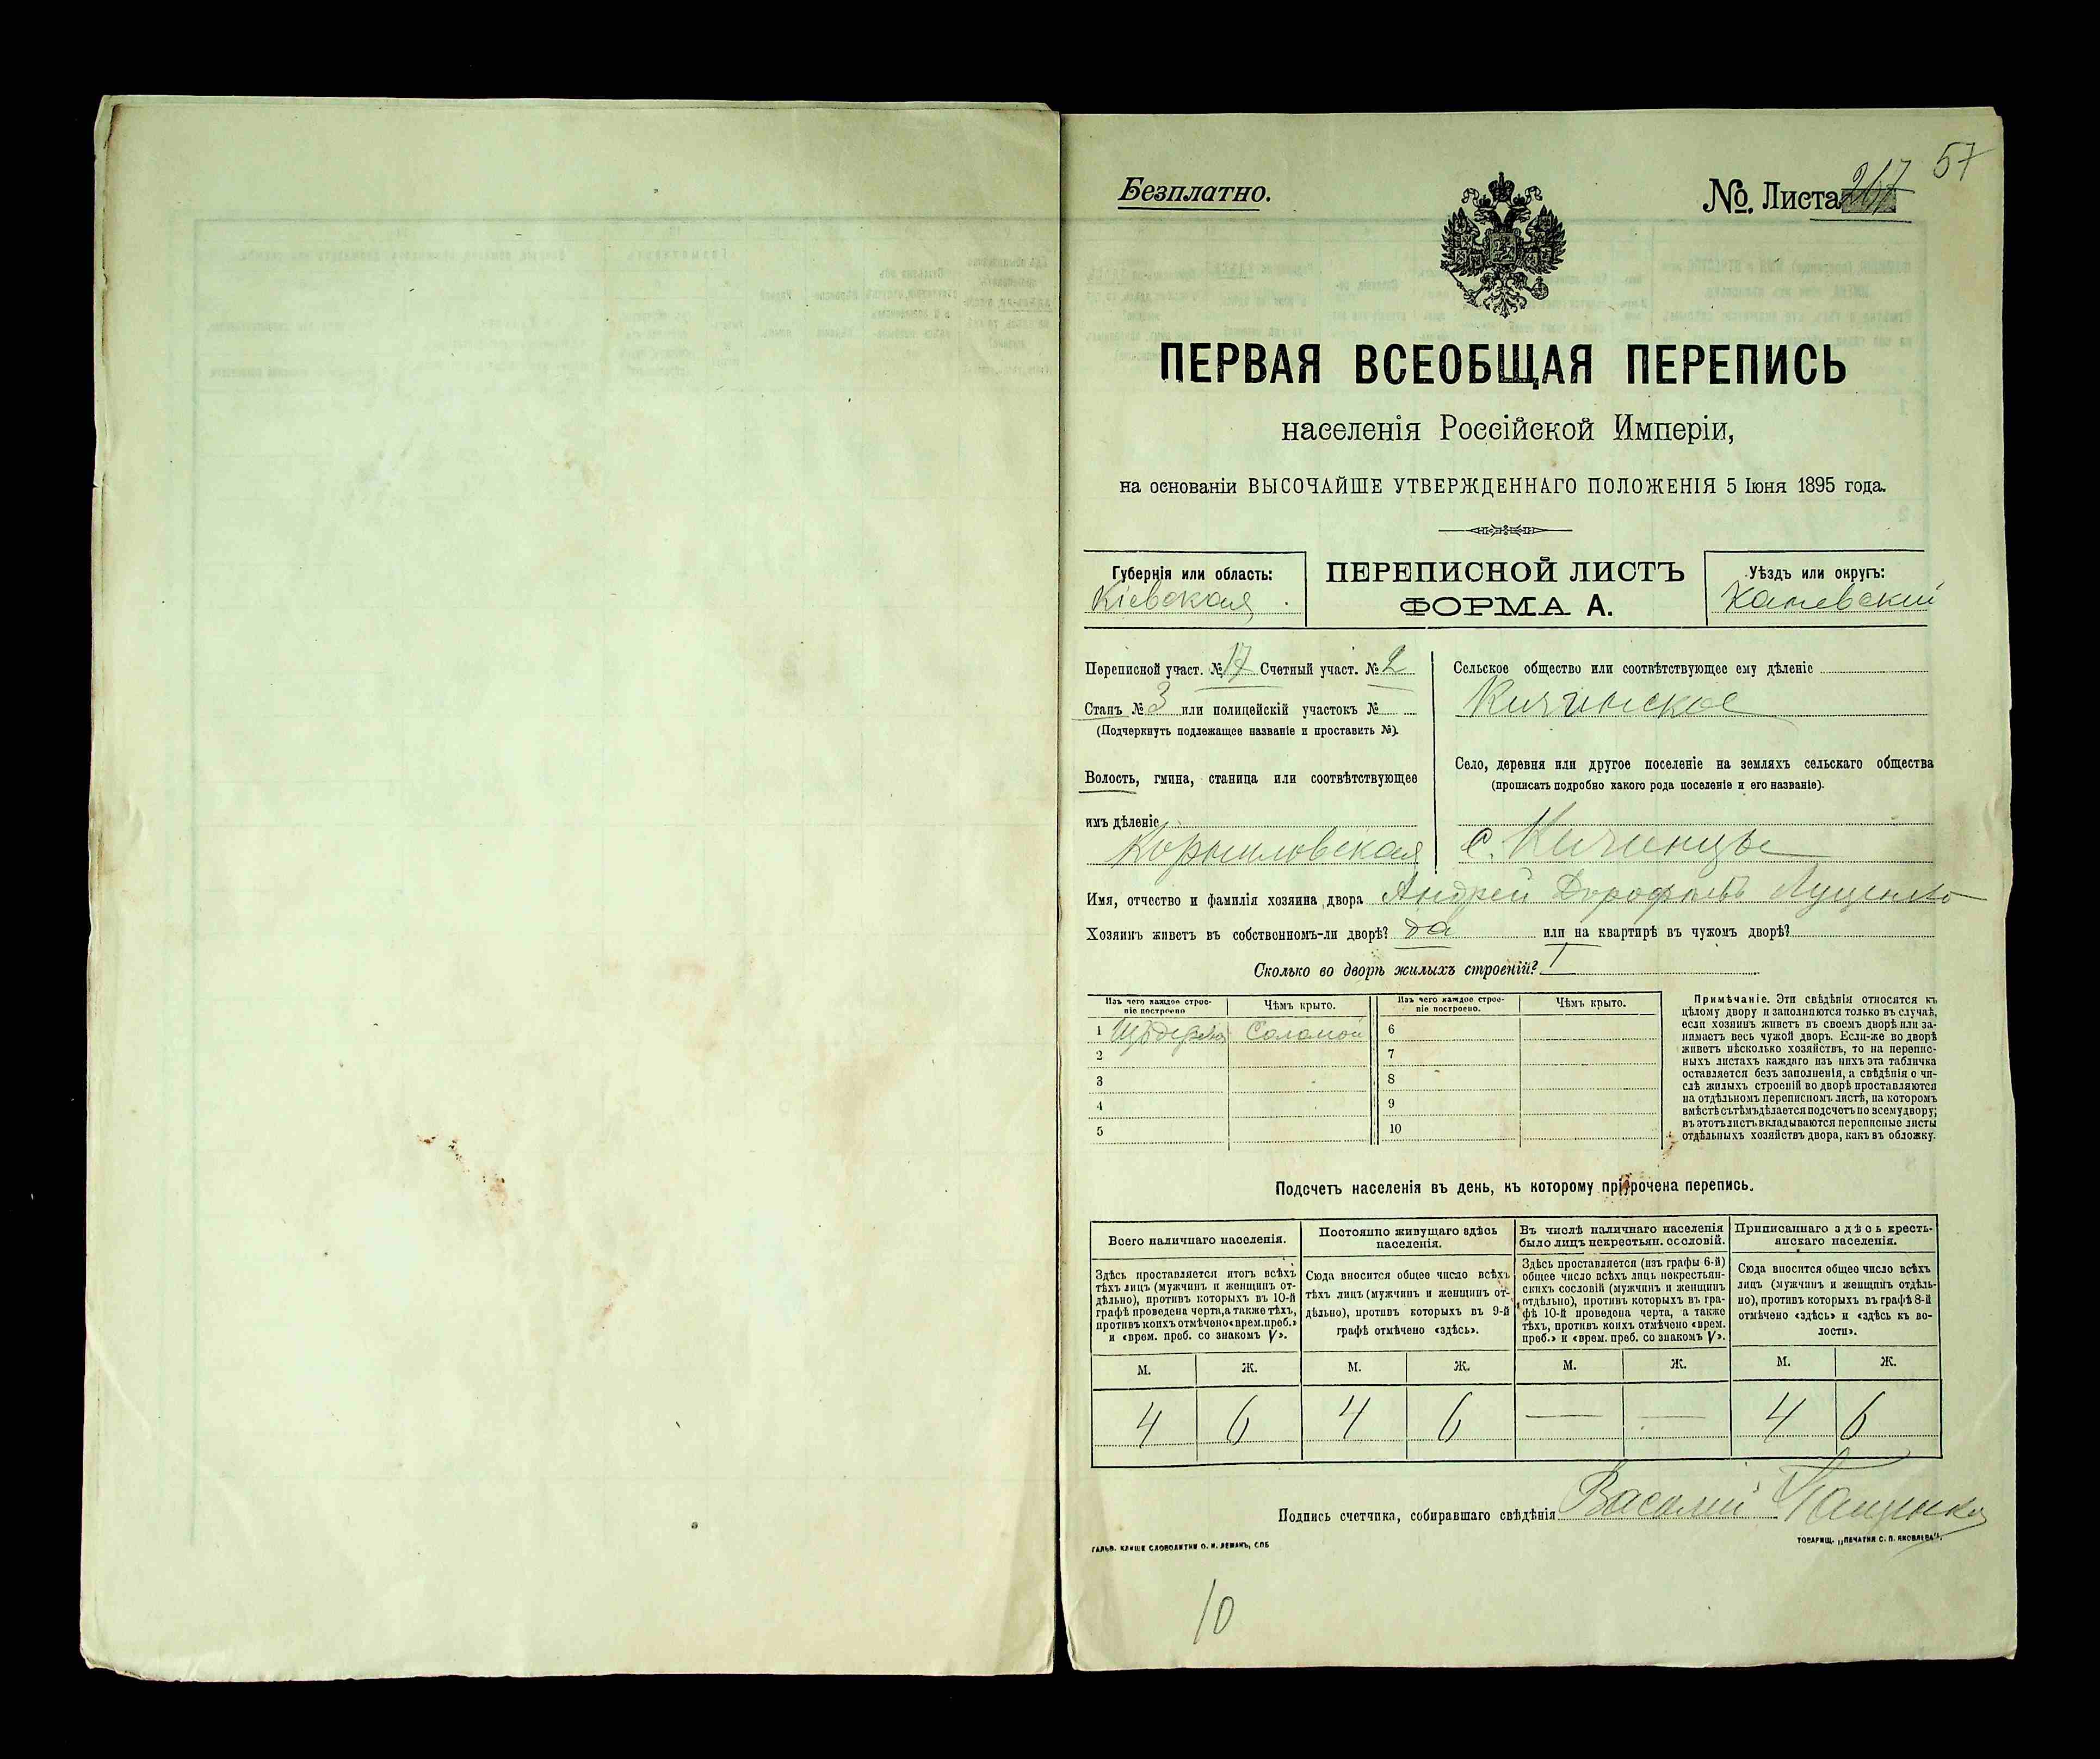 57
Безплатно.
№. Листа 217
ПЕРВАЯ ВСЕОБЩАЯ ПЕРЕПИСЬ
населенія Россійской Имперіи,
на основаніи ВЫСОЧАЙШЕ УТВЕРЖДЕННАГО ПОЛОЖЕНІЯ 5 Іюня 1895 года.
Губернія или область:
Кіевская
ПЕРЕПИСНОЙ ЛИСТЪ
ФОРМА А.
Уѣздъ или округъ:
Каневскій
Переписной участ. № 17 Счетный участ. № 2
Станъ № 3 или полицейскій участокъ №
(Подчеркнуть подлежащее названіе и проставить №).
Волость, гмина, станица или соотвѣтствующее
имъ дѣленіе
Корниловская
Сельское общество или соотвѣтствующее ему дѣленіе
Кичинское
Село, деревня или другое поселеніе на земляхъ сельскаго общества
(прописать подробно какого рода поселеніе и его названіе).
с. Кичинцы
Имя, отчество и фамилія хозяина двора Андрей Дорофѣевъ Луценко
Хозяинъ живетъ въ собственномъ-ли дворѣ? да или на квартирѣ въ чужомъ дворѣ?
Сколько во дворѣ жилыхъ строеній? I
Изъ чего каждое строеніе построено
Чѣмъ крыто.
Изъ чего каждое строеніе построено.
Чѣмъ крыто.
1 Соломой
2
3
4
5
6
7
8
9
10
Примѣчаніе. Эти свѣдѣнія относятся къ
цѣлому двору и заполняются только въ случаѣ,
если хозяинъ живетъ въ своемъ дворѣ или за-
нимаетъ весь чужой дворъ. Если-же во дворѣ
живетъ нѣсколько хозяйствъ, то на перепис-
ныхъ листахъ каждаго изъ нихъ эта табличка
оставляется безъ заполненія, а свѣдѣнія о чи-
слѣ жилыхъ строеній во дворѣ проставляются
на отдѣльномъ переписномъ листѣ, на которомъ
вмѣстѣ съ тѣмъ дѣлается подсчетъ по всему двору;
въ этотъ листъ вкладываются переписные листы
отдѣльныхъ хозяйствъ двора, какъ въ обложку.
Подсчетъ населенія въ день, къ которому пріурочена перепись.
Всего наличнаго населенія.
Здѣсь проставляется итогъ всѣхъ
тѣхъ лицъ (мужчинъ и женщинъ от-
дѣльно), противъ которыхъ въ 10-й
графѣ проведена черта, а также тѣхъ,
противъ коихъ отмѣчено «врем. преб.»
и «врем. преб. со знакомъ V».
Постоянно живущаго здѣсь
населенія.
Сюда вносится общее число всѣхъ
тѣхъ лицъ (мужчинъ и женщинъ от-
дѣльно), противъ которыхъ въ 9-й
графѣ отмѣчено «здѣсь».
Въ числѣ наличнаго населенія
было лицъ некрестьян. сословій.
Здѣсь проставляется (изъ графы 6-й)
общее число всѣхъ лицъ некрестьян-
скихъ сословій (мужчинъ и женщинъ
отдѣльно), противъ которыхъ въ гра-
фѣ 10-й проведена черта, а также
тѣхъ, противъ коихъ отмѣчено «врем.
преб.» и «врем. преб. со знакомъ V».
Приписаннаго здѣсь кресть-
янскаго населенія.
Сюда вносится общее число всѣхъ
лицъ (мужчинъ и женщинъ отдѣль-
но), противъ которыхъ въ графѣ 8-й
отмѣчено «здѣсь» и «здѣсь къ во-
лости».
М. Ж. М. Ж. М. Ж. М. Ж.
4 6 4 6 — — 4 6
Подпись счетчика, собиравшаго свѣдѣнія Василій
ГАЛЬВ. КЛИШЕ СЛОВОЛИТНИ О. И. ЛЕМАНЪ, СПБ
ТОВАРИЩ. „ПЕЧАТНЯ С. П. ЯКОВЛЕВА".
10